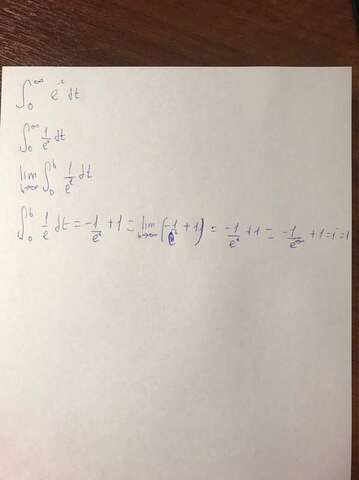 ∫₀^∞ e^t dt
∫₀^∞ 1/e^t dt
lim b→∞ ∫₀^b 1/e^t dt
∫₀^b 1/e dt = -1/e^b + 1 = lim b→∞ (-1/e^b + 1) = -1/e^b + 1 = -1/e^∞ + 1 = i = 1